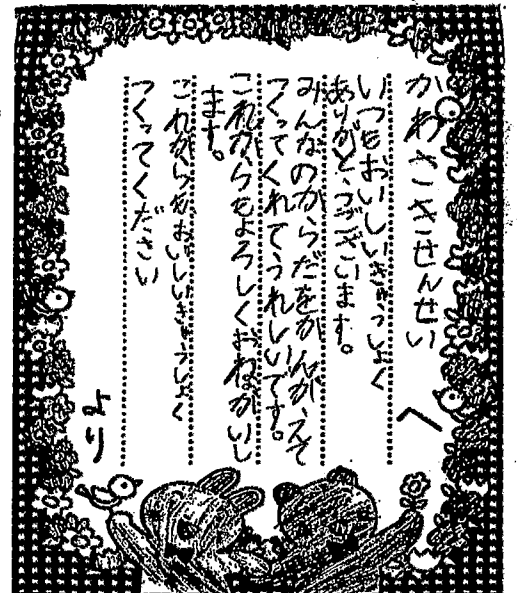 かわさきせんせいへ
いつもおいしいきゅうしょく
ありがとうございます。
みんなのからだをかんがえて
つくってくれてうれしいです。
これからもよろしくおねがいし
ます。
これからもおいしいきゅうしょく
つくってください
みり